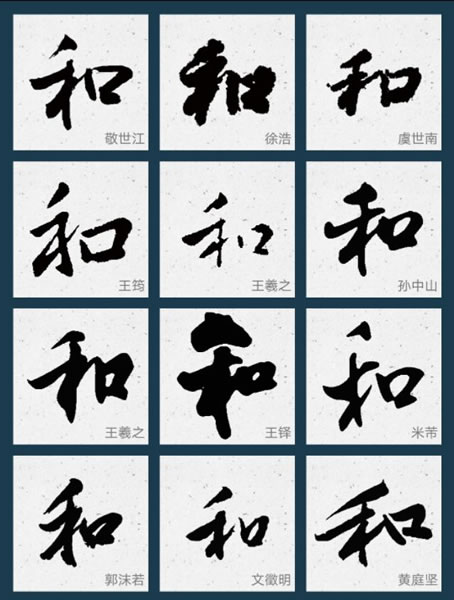 和 和 和
敬世江 徐浩 虞世南
和 和 和
王筠 王羲之 孙中山
和 和 和
王羲之 王铎 米芾
和 和 和
郭沫若 文徵明 黄庭坚